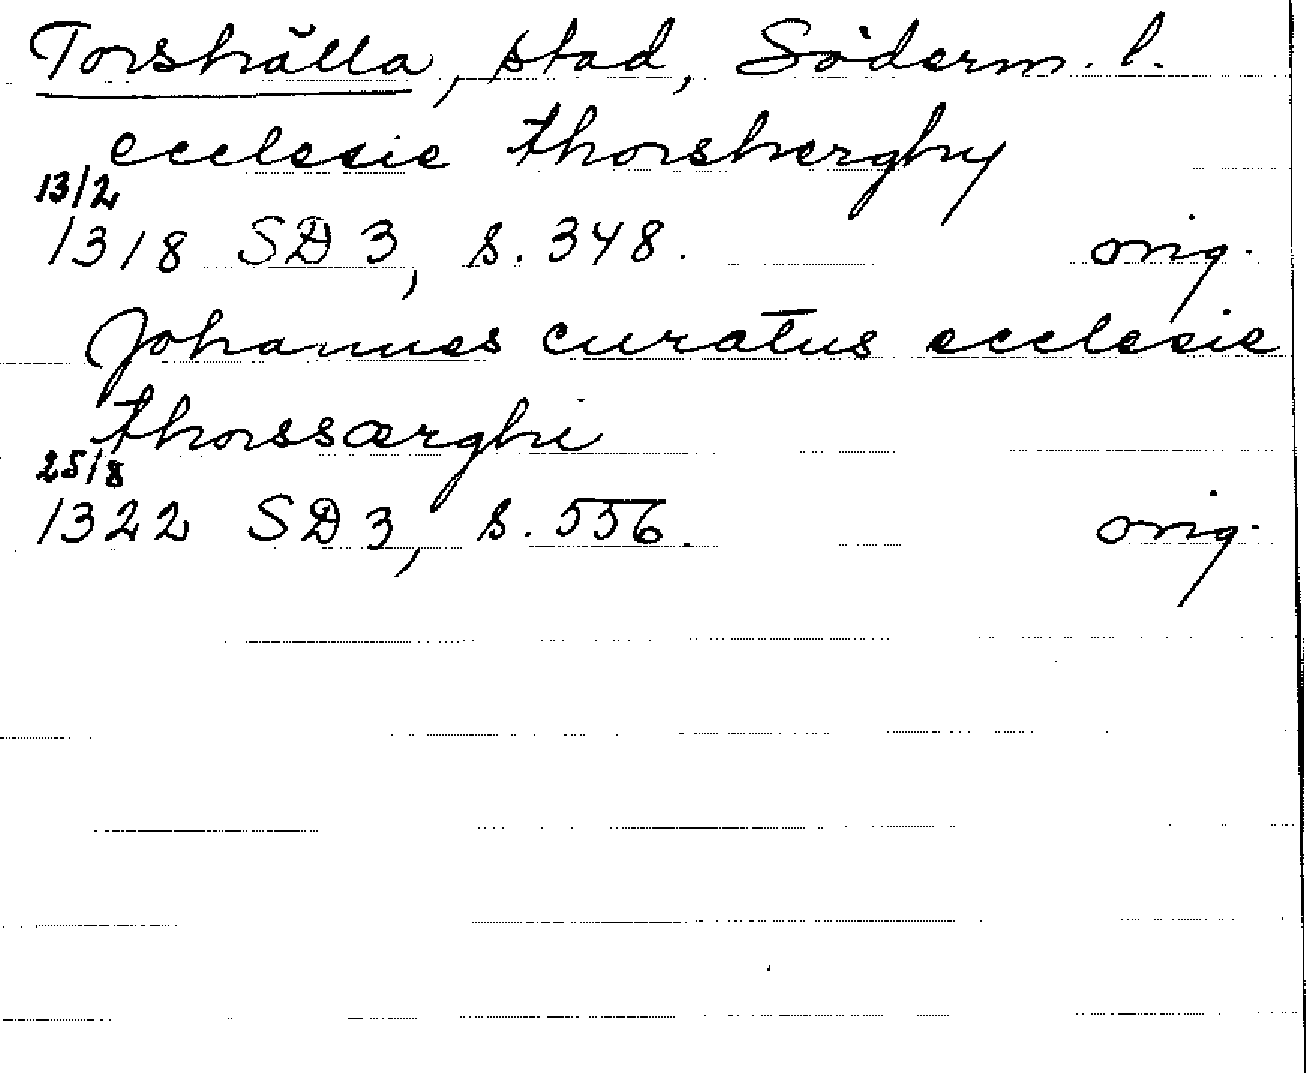 Torshälla, stad, Söderm. l.
ecclesie thorsherghy
13/2
1318 SD 3, s. 348. orig.
Johannes curatus ecclesie
thorssærghi
25/8
1322 SD 3, s. 556. orig.